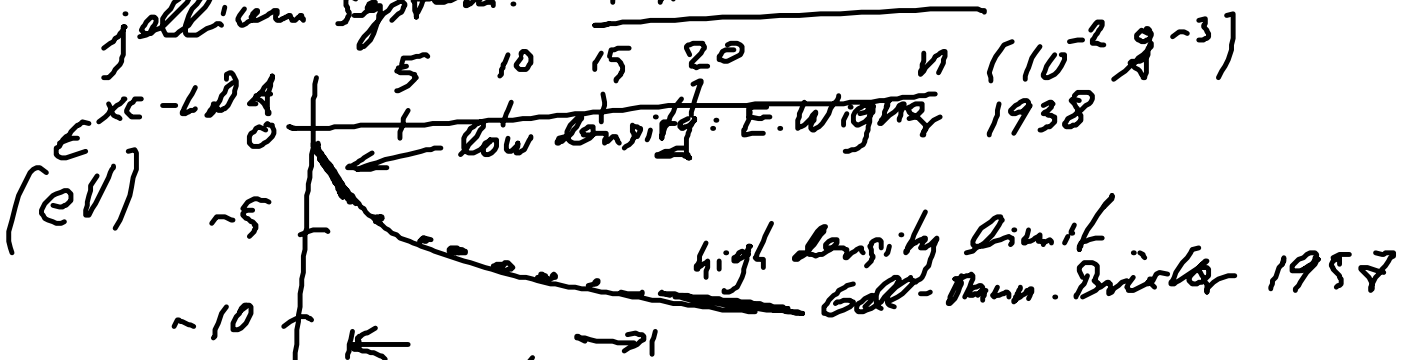 jellium system.
5 10 15 20 n (10^-2 Å^-3)
ε^xc-LDA
0 low density: E. Wigner 1938
(eV)
-5
high density limit
Gell-Mann. Brücker 1957
-10